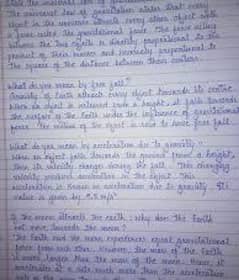 State the universal law of gravitation
The universal law of gravitation states that every
object in the universe attracts every other object with
a force called the gravitational force. The force acting
between the two objects is directly proportional to the
product of their masses and inversely proportional to
the square of the distance between their centers.
What do you mean by free fall?
Gravity of Earth attracts every object towards its centre.
When an object is released from a height, it falls towards
the surface of the Earth under the influence of gravitational
force. The motion of the object is said to have free fall.
What do you mean by acceleration due to gravity?
When an object falls towards the ground from a height,
then its velocity changes during the fall. This changing
velocity produces acceleration in the object. This
acceleration is known as acceleration due to gravity. Its
value is given by 9.8 m/s²
If the moon attracts the earth, why does the Earth
not move towards the moon?
The Earth and the moon experience equal gravitational
force from each other. However, the mass of the Earth
is more larger than the mass of the moon. Hence, it
accelerates at a rate much more than the acceleration